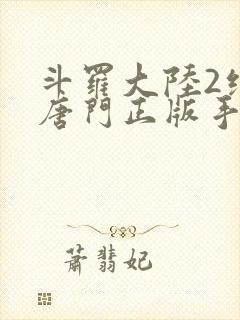 斗羅大陸2
唐門正版手
蕭翡妃